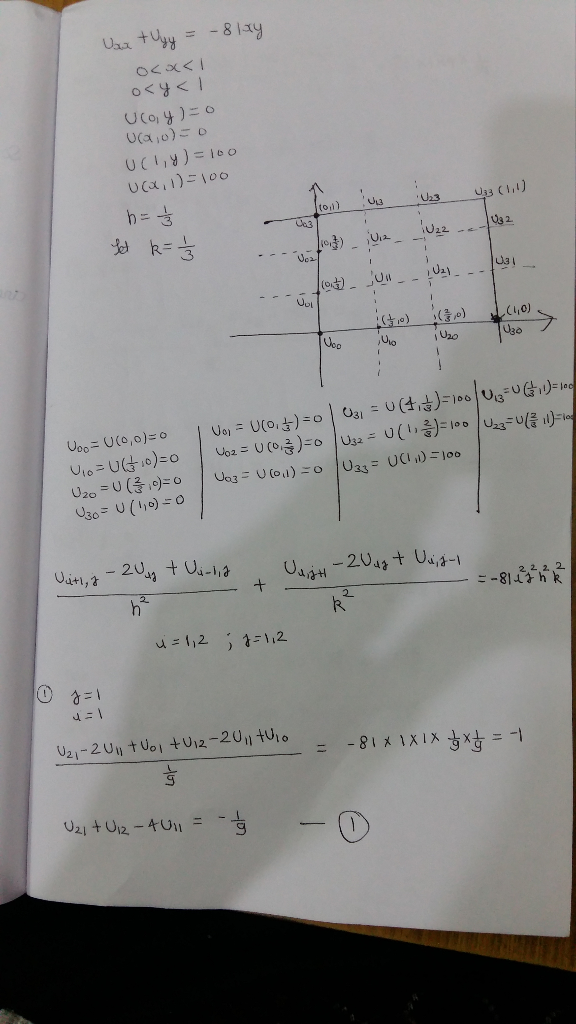 Uxx + Uyy = -81xy
0<x<1
0<y<1
U(0,y)=0
U(x,0)=0
U(1,y)=100
U(x,1)=100
h=1/3
let k=1/3
(0,1) U13 U23 U33 (1,1)
U03
(0,2/3) U12 U22 U32
U02
(0,1/3) U11 U21 U31
U01
(1/3,0) (2/3,0) (1,0)
U00 U10 U20 U30
U00 = U(0,0)=0
U10 = U(1/3,0)=0
U20 = U(2/3,0)=0
U30 = U(1,0)=0
U01 = U(0,1/3)=0
U02 = U(0,2/3)=0
U03 = U(0,1)=0
U31 = U(1,1/3)=100
U32 = U(1,2/3)=100
U33 = U(1,1)=100
U13=U(1/3,1)=100
U23=U(2/3,1)=100
(Ui+1,j - 2Uij + Ui-1,j)/h² + (Ui,j+1 - 2Uij + Ui,j-1)/k² = -81i²j²h²k²
i=1,2 ; j=1,2
① j=1
i=1
(U21-2U11+U01+U12-2U11+U10)/(1/9) = -81×1×1×1/9×1/9 = -1
U21+U12-4U11 = -1/9 — ①